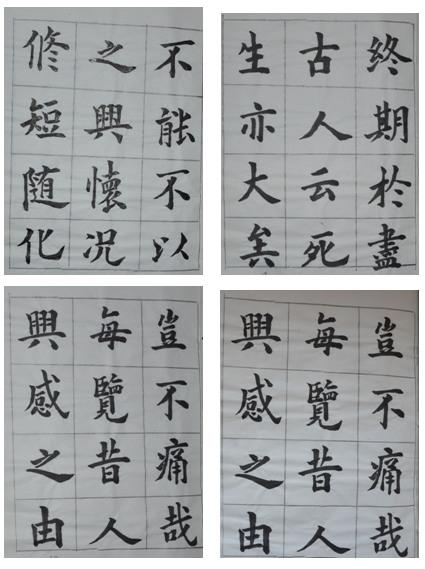 不能不以
之興懷况
修短随化
終期於盡
古人云死
生亦大矣
豈不痛哉
每覽昔人
興感之由
豈不痛哉
每覽昔人
興感之由